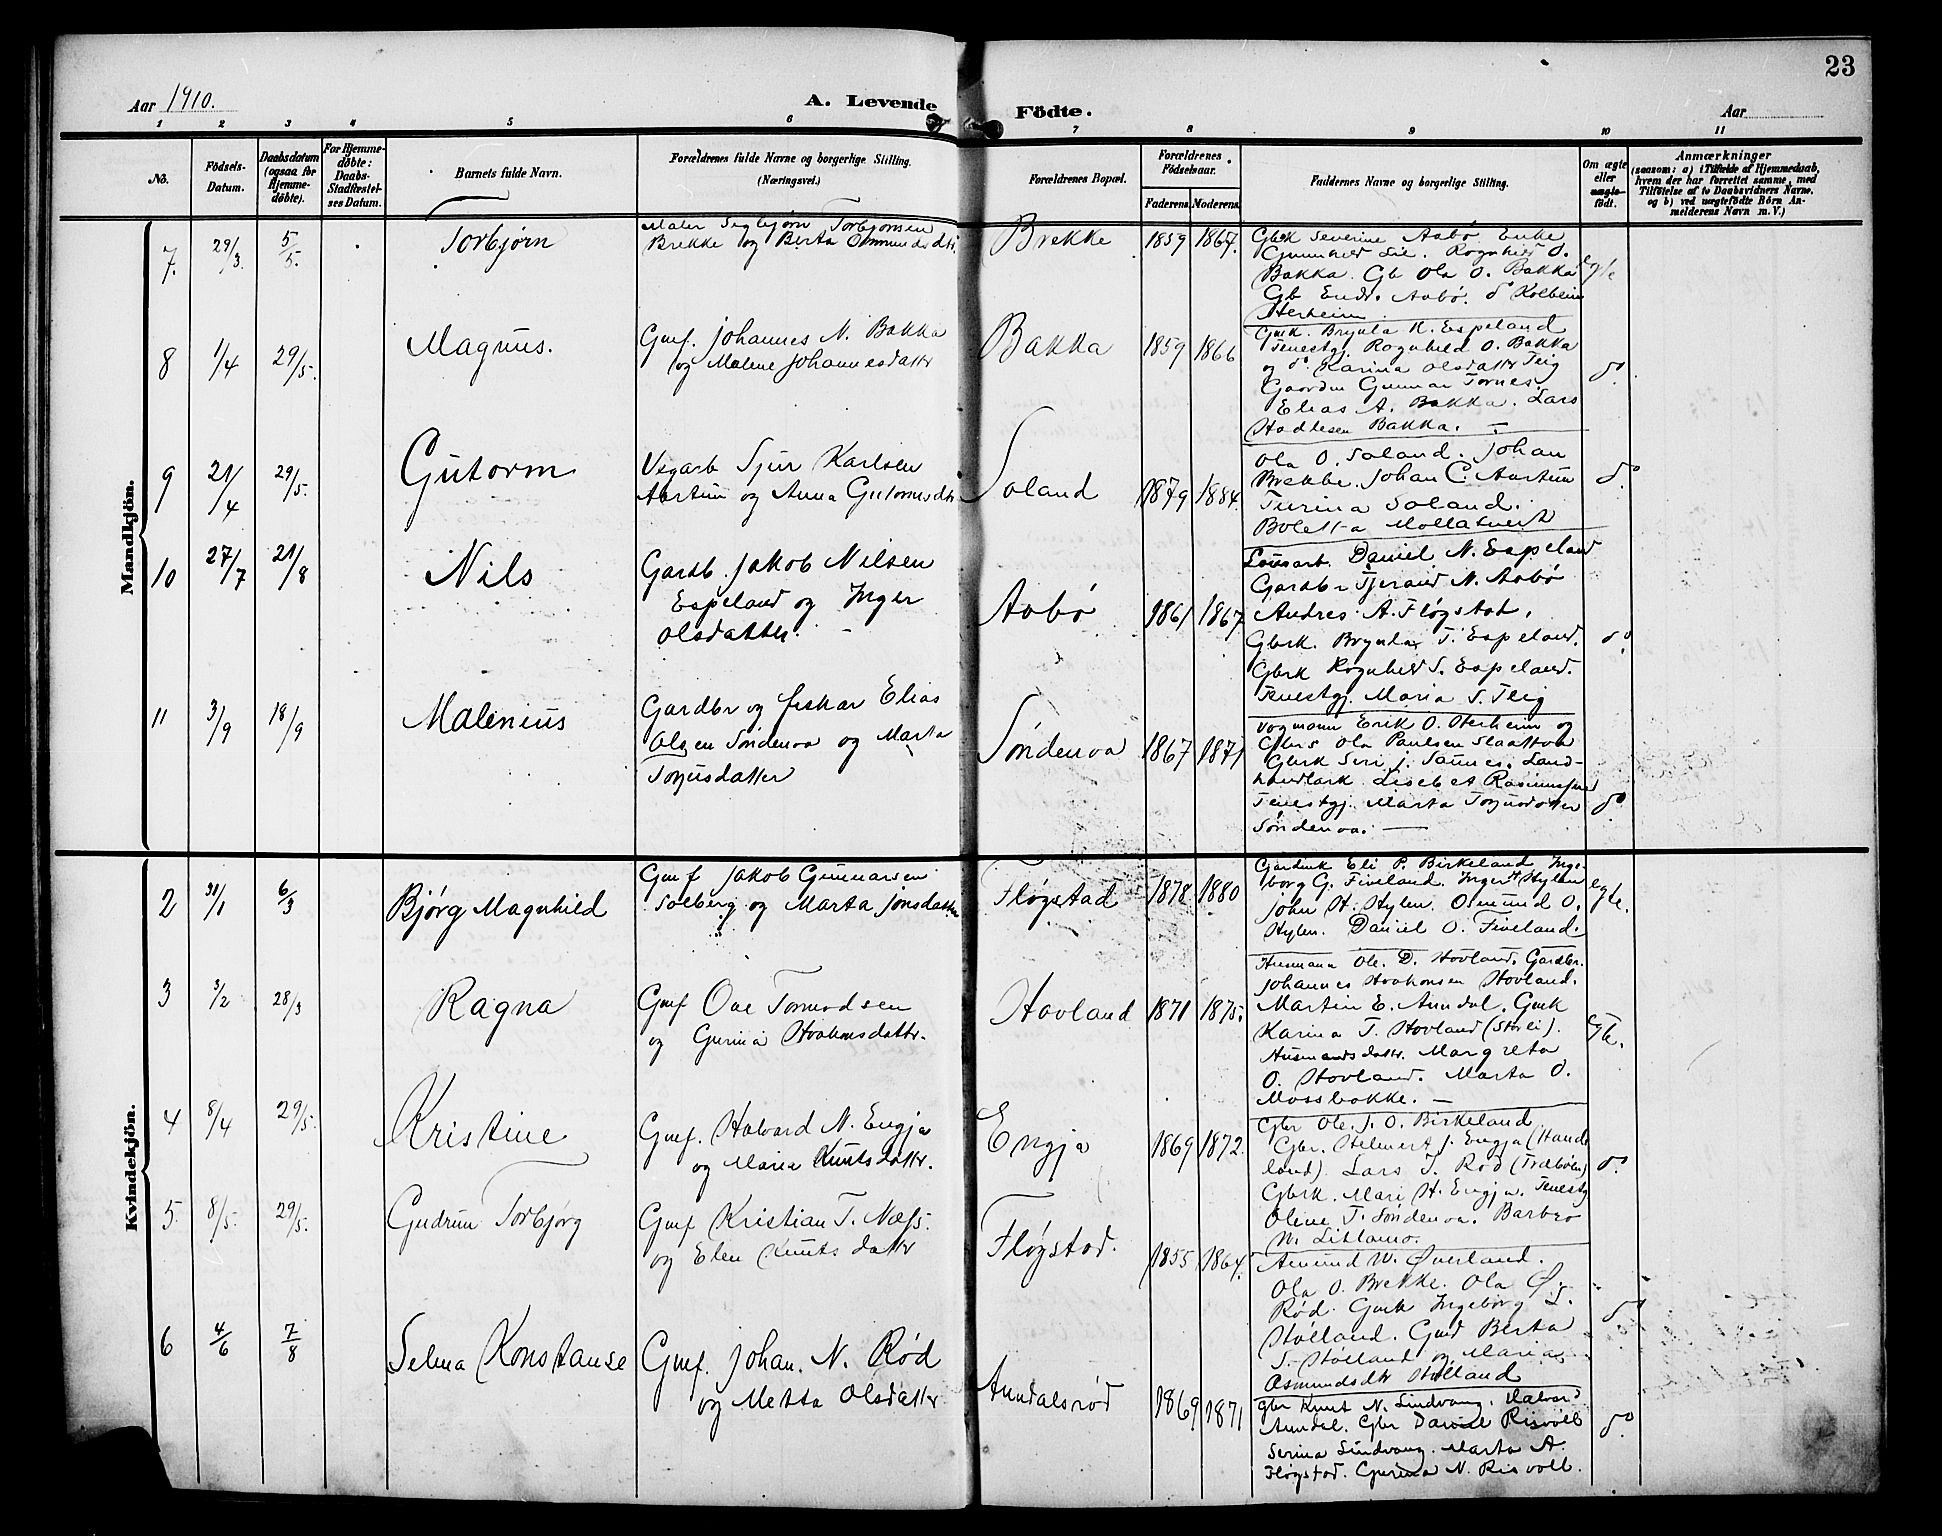 23
Aar 1910.
A. Levende Födte.
Aar
1 2 3 4 5 6 7 8 9 10 11
No.
Födsels-
Datum.
Daabsdatum
(ogsaa for
Hjemme-
döbte).
For Hjemme-
döbte:
Daabs-
Stadfæstel-
ses Datum.
Barnets fulde Navn.
Forældrenes fulde Navne og borgerlige Stilling.
(Næringsvei.)
Forældrenes Bopæl.
Forældrenes
Födselsaar.
Faderens. Moderens.
Faddernes Navne og borgerlige Stilling.
Om ægte
eller
uægte
födt.
Anmærkninger
(saasom: a) i Tilfælde af Hjemmedaab,
hvem der har forrettet samme, med
Tilföielse af to Daabsvidners Navne.
og b) ved uægtefödte Börn An-
melderens Navn m. V.)
Mandkjön.
7. 29/3. 5/5.
Torbjørn
Maler Segbjørn Torbjørnsen
Brekke og Berta Omundsdtr
Brekke
1859 1867.
Gbrk Severine Aabø Enke
Gunnhild Lie. Rognhild O.
Bakka. Gb Ola O. Bakka
Gb Endr. Aabø. do Kolbein
Herheim
egte
8 1/4 29/5.
Magnus.
Gmf. Johannes N. Bakka
og Malene Johannesdatter
Bakka
1859 1866
Gmk. Brynla K. Espeland
Tenestgj. Rognhild O. Bakka
og do Karina Olsdatter Teig
Gaardm Gunnar Tornes.
Elias A. Bakka. Lars
Hadlesen Bakka.
do
9 21/4 29/5.
Gutorm
Vegarb Sjur Karlsen
Aartun og Anna Gutormsdtr
Soland
1879 1884.
Ola O. Soland. Johan
Brekke. Johan C. Aartun
Turina Soland.
Boletta Mollatveit
do
10 27/7 21/8
Nils
Gardb. Jakob Nilsen
Espeland og Inger
Olsdatter.
Aabø
1861 1867
Lausarb. Daniel N. Espeland
Gardbr Tjerand N. Aabø
Andres A. Fløgstad.
Gbrk. Brynla T. Espeland.
Gbrk Rognhild S. Espeland.
Tenestgj. Maria S. Teig
do
11 3/9 18/9
Malenius
Gardbr og fiskar Elias
Olsen Søndenaa og Marta
Torjusdatter
Søndenaa
1867 1871
Vogmann Erik O. Herheim og
Gbrs Ola Paulsen Slaattaa
Gbrk Seri J. Saunes. Land-
handlark. Lisebet
Tenestgj. Marta Torjusdatter
Søndenaa.
do
Kvindekjön.
2 31/1 6/3
Bjørg Magnhild
Gmf Jakob Gunnarsen
Solberg og Marta Jonsdatter
Fløgstad
1878 1880
Gardmk Eli P. Birkeland Inge-
borg G. Fiveland. Inger H Hylen
John H. Hylen. Osmund O.
Hylen. Daniel O. Fiveland.
egte.
3 3/2 28/3
Ragna
Gmf Ove Tormodsen
og Gurina Haakonsdatter.
Hovland
1871 1875.
Husmann Ole. D. Hovland. Gardbr.
Johannes Haakonsen Hovland.
Martin E. Aundal. Gmk
Karina T. Hovland (Storli).
Husmandsdatter. Margreta
O. Hovland. Marta O.
Mossbakke.
egte.
4 8/4 29/5.
Kristine
Gmf. Halvard N. Engja
og Maria Knutsdatter.
Engja
1869 1872.
Gbr Ole. J. O. Birkeland
Gbr. Helmert J. Engja (Hande
land). Lars T. Rød (Træbøen)
Gbrk. Mari H. Engja. Tenestg
Oline T. Søndenaa. Barbro
N. Litlamo.
do
5 8/5. 29/5.
Gudrun Torbjørg
Gmf Kristian T. Næss.
og Elen Knuts datter
Fløgstad.
1855 1864.
Amund W. Øverland.
Ola O. Brekke. Ola Ø.
Rød. Gmk Ingeborg L.
Hølland. Gmd Berta
S. Hølland og Maria
Osmundsdtr Hølland
do
6 4/6 7/8
Selma Konstanse
Gmf. Johan. N. Rød
og Metta Olsdatter
Aundalsrød
1869 1871
gbr Knut N. Lindvang. Halvard
Aundal. Gbr Daniel Risvoll
Serina Lindvang. Marta A.
Fløgstad. Gurina N. Risvoll.
do